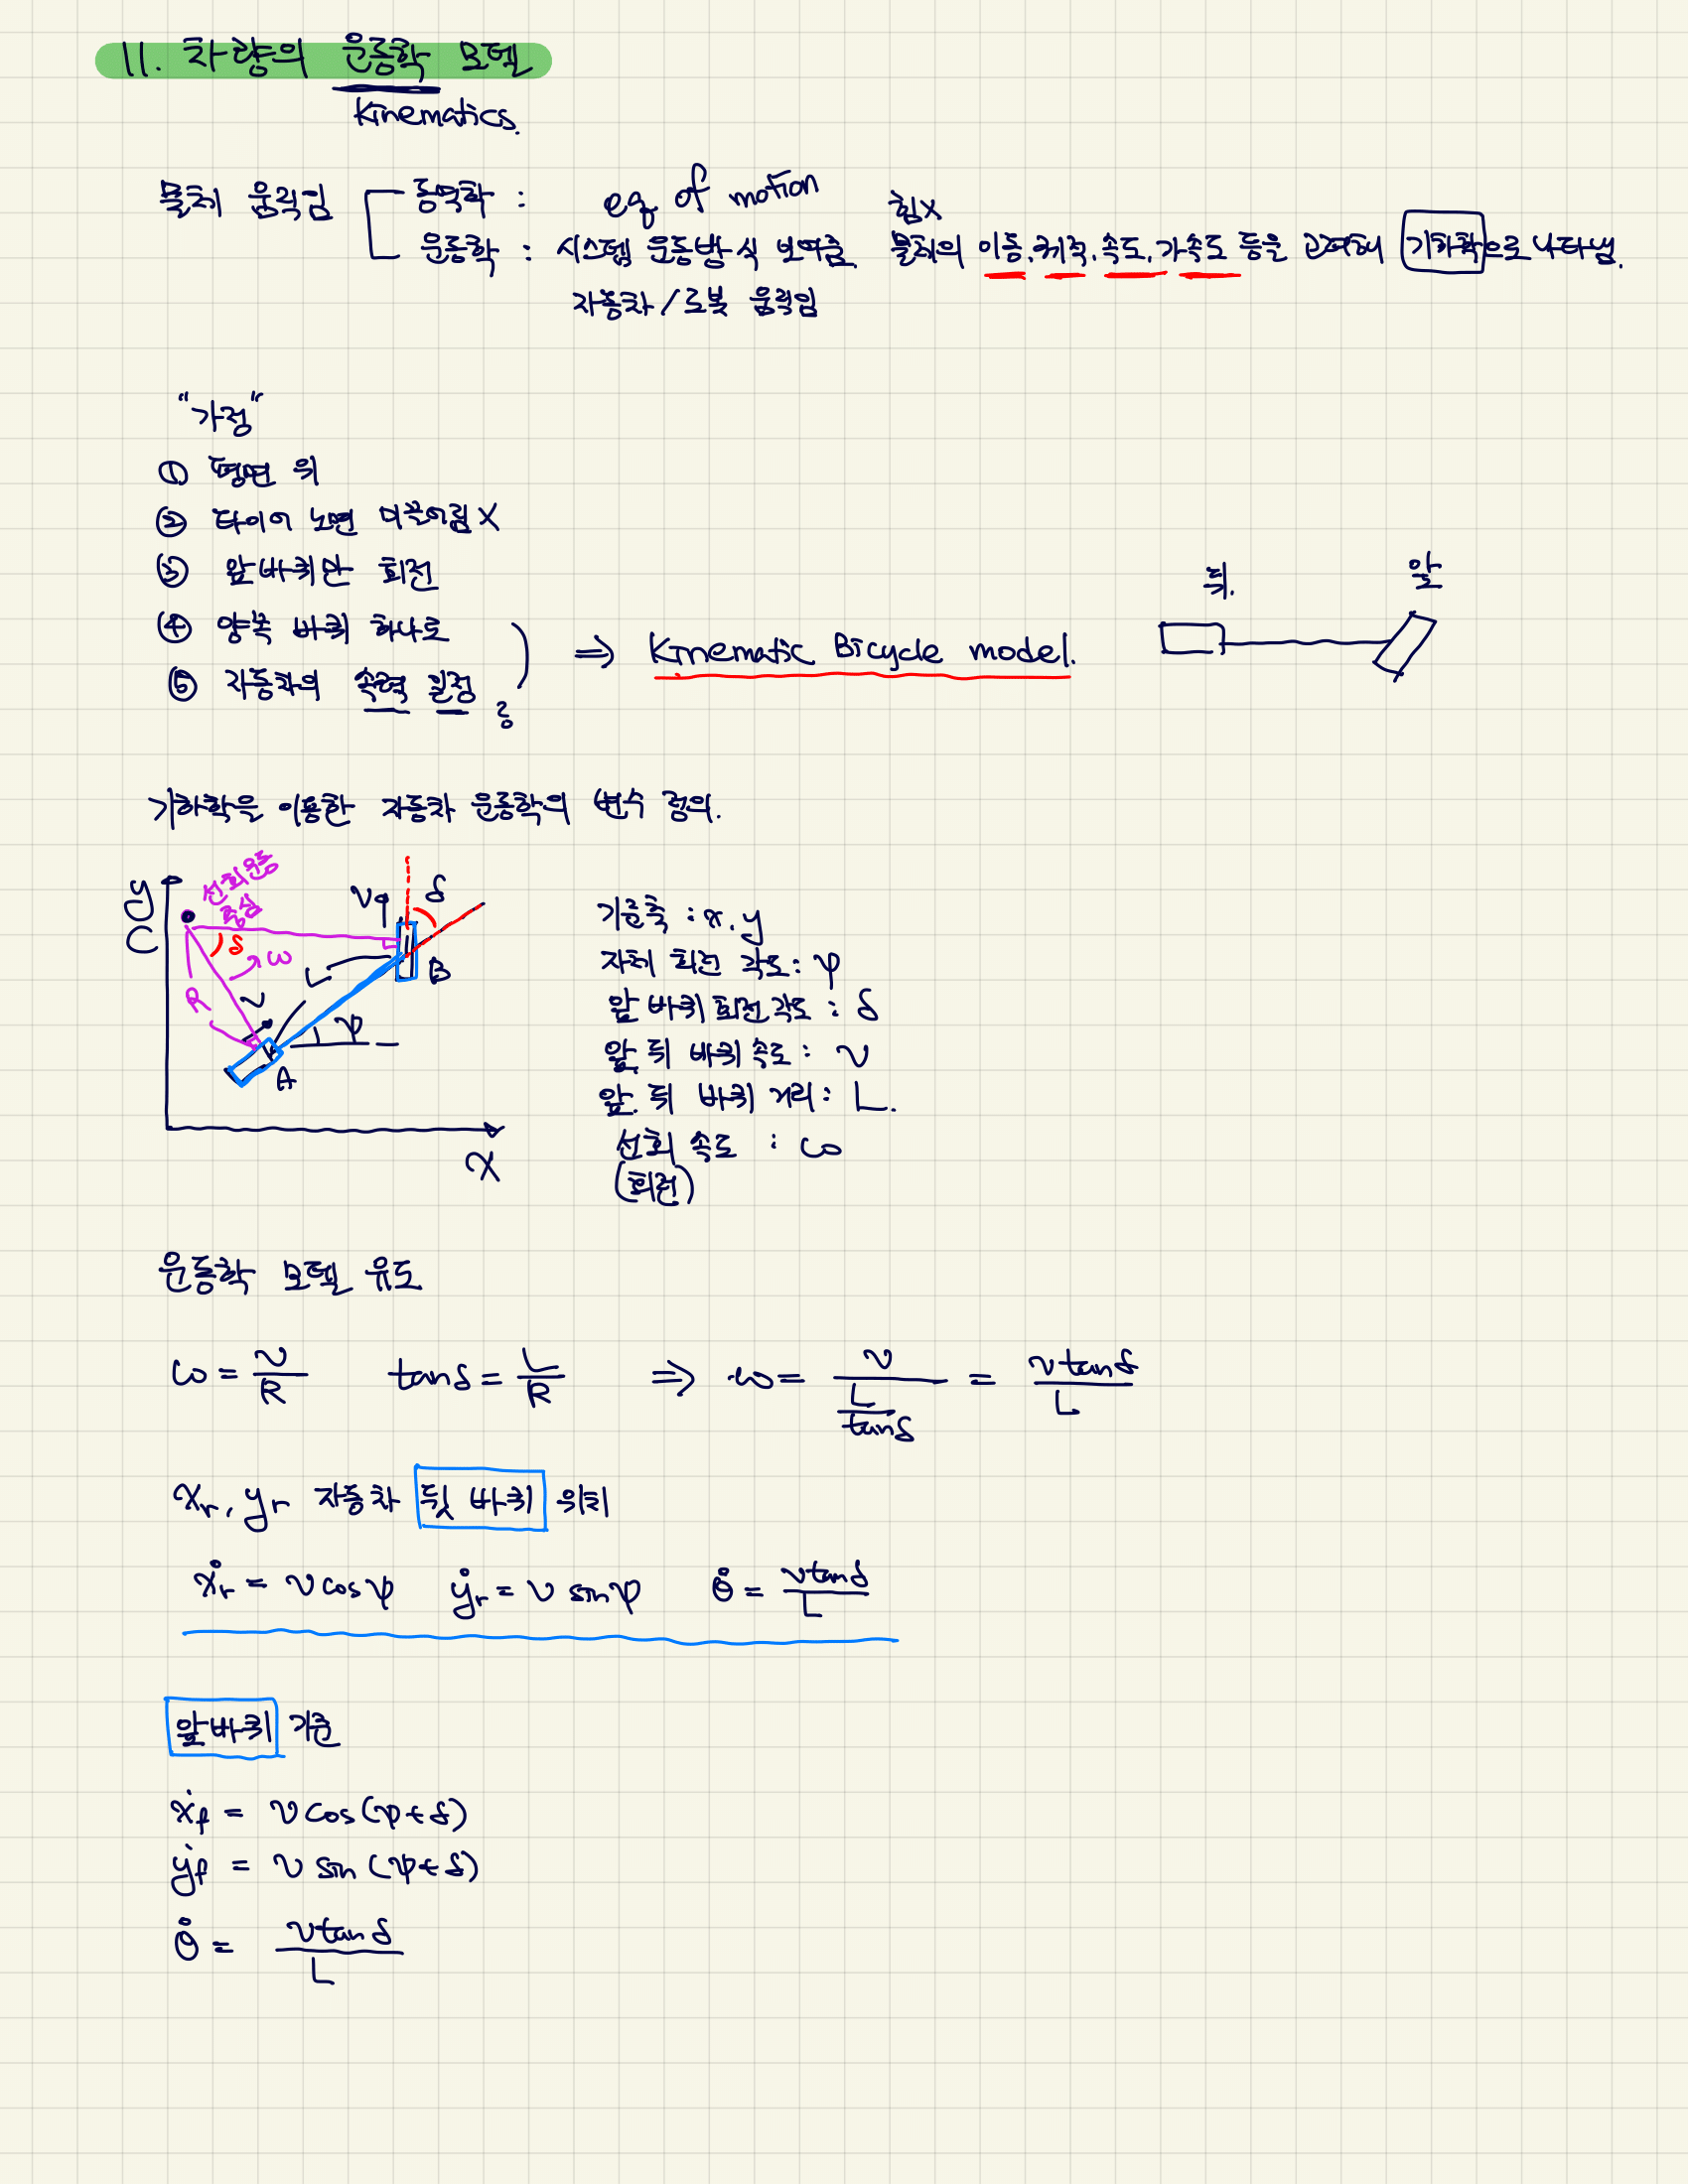 11. 차량의 운동학 모델
Kinematics.
물체 움직임
동역학 : eq of motion
힘X
운동학 : 시스템 운동방식 보여줌. 물체의 이동, 궤적, 속도, 가속도 등을 고려해 기하학으로 나타냄.
자동차/로봇 움직임
"가정"
① 평면 위
② 타이어 노면 미끄러짐 X
③ 앞바퀴만 회전
④ 양쪽 바퀴 하나로
⑤ 자동차의 속력 일정
⇒ Kinematic Bicycle model.
뒤. 앞
기하학을 이용한 자동차 운동학의 변수 정의.
y
선회운동
중심
δ
ω
R
v
L
v
δ
B
ψ
A
x
기준축 : x, y
자체 회전 각도 : ψ
앞 바퀴 회전 각도 : δ
앞, 뒤 바퀴 속도 : v
앞, 뒤 바퀴 거리 : L.
선회 속도 : ω
(회전)
운동학 모델 유도
ω = v/R tanδ = L/R ⇒ ω = v/(L/tanδ) = v tanδ/L
x_r, y_r 자동차 뒷 바퀴 위치
ẋ_r = v cosψ ẏ_r = v sinψ θ̇ = v tanδ/L
앞바퀴 기준
ẋ_f = v cos(ψ+δ)
ẏ_f = v sin(ψ+δ)
θ̇ = v tanδ/L